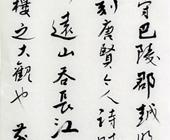 守巴陵郡越明
刻唐賢今人詩賦
遠山吞長江
樓之大觀也